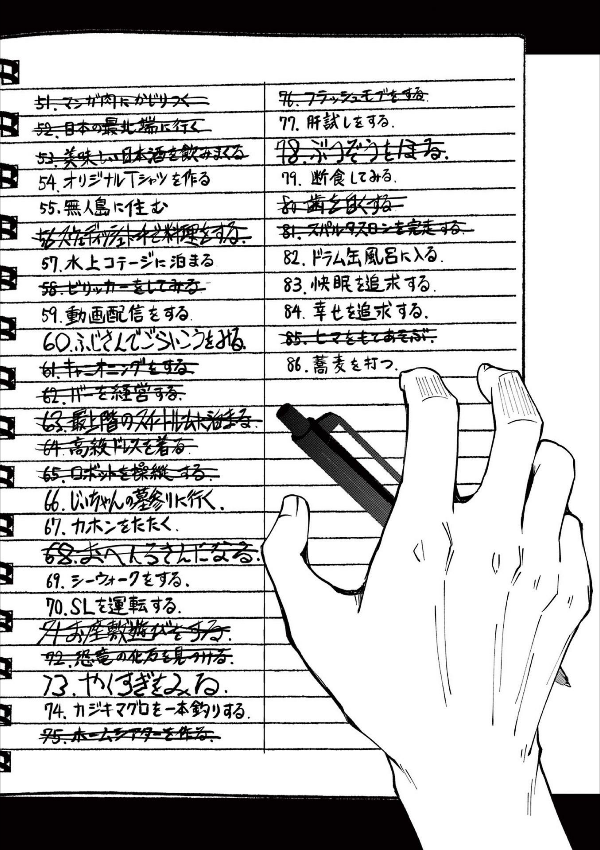 51. マンガ肉にかじりつく
52. 日本の最北端に行く
53. 美味しい日本酒を飲みまくる
54. オリジナルTシャツを作る
55. 無人島に住む
56. スウェディッシュトーチで料理をする.
57. 水上コテージに泊まる
58. ビリッカーをしてみる.
59. 動画配信をする.
60. ふじさんでごらいこうをみる.
61. キャニオニングをする.
62. バーを経営する.
63. 最上階のスイートルームに泊まる.
64. 高級ドレスを着る
65. ロボットを操縦する.
66. じいちゃんの墓参りに行く.
67. カホンをたたく.
68. おへんろさんになる.
69. シーウォークをする.
70. SLを運転する.
71. お座敷遊びをする.
72. 恐竜の化石を見つける.
73. やくすぎをみる.
74. カジキマグロを一本釣りする.
75. ホームシアターを作る.
76. フラッシュモブをする.
77. 肝試しをする.
78. ぶつぞうをほる.
79. 断食してみる.
80. 歯を白くする
81. スパルタスロンを完走する.
82. ドラム缶風呂に入る.
83. 快眠を追求する.
84. 幸せを追求する.
85. ヒマをもてあそぶ.
86. 蕎麦を打つ.